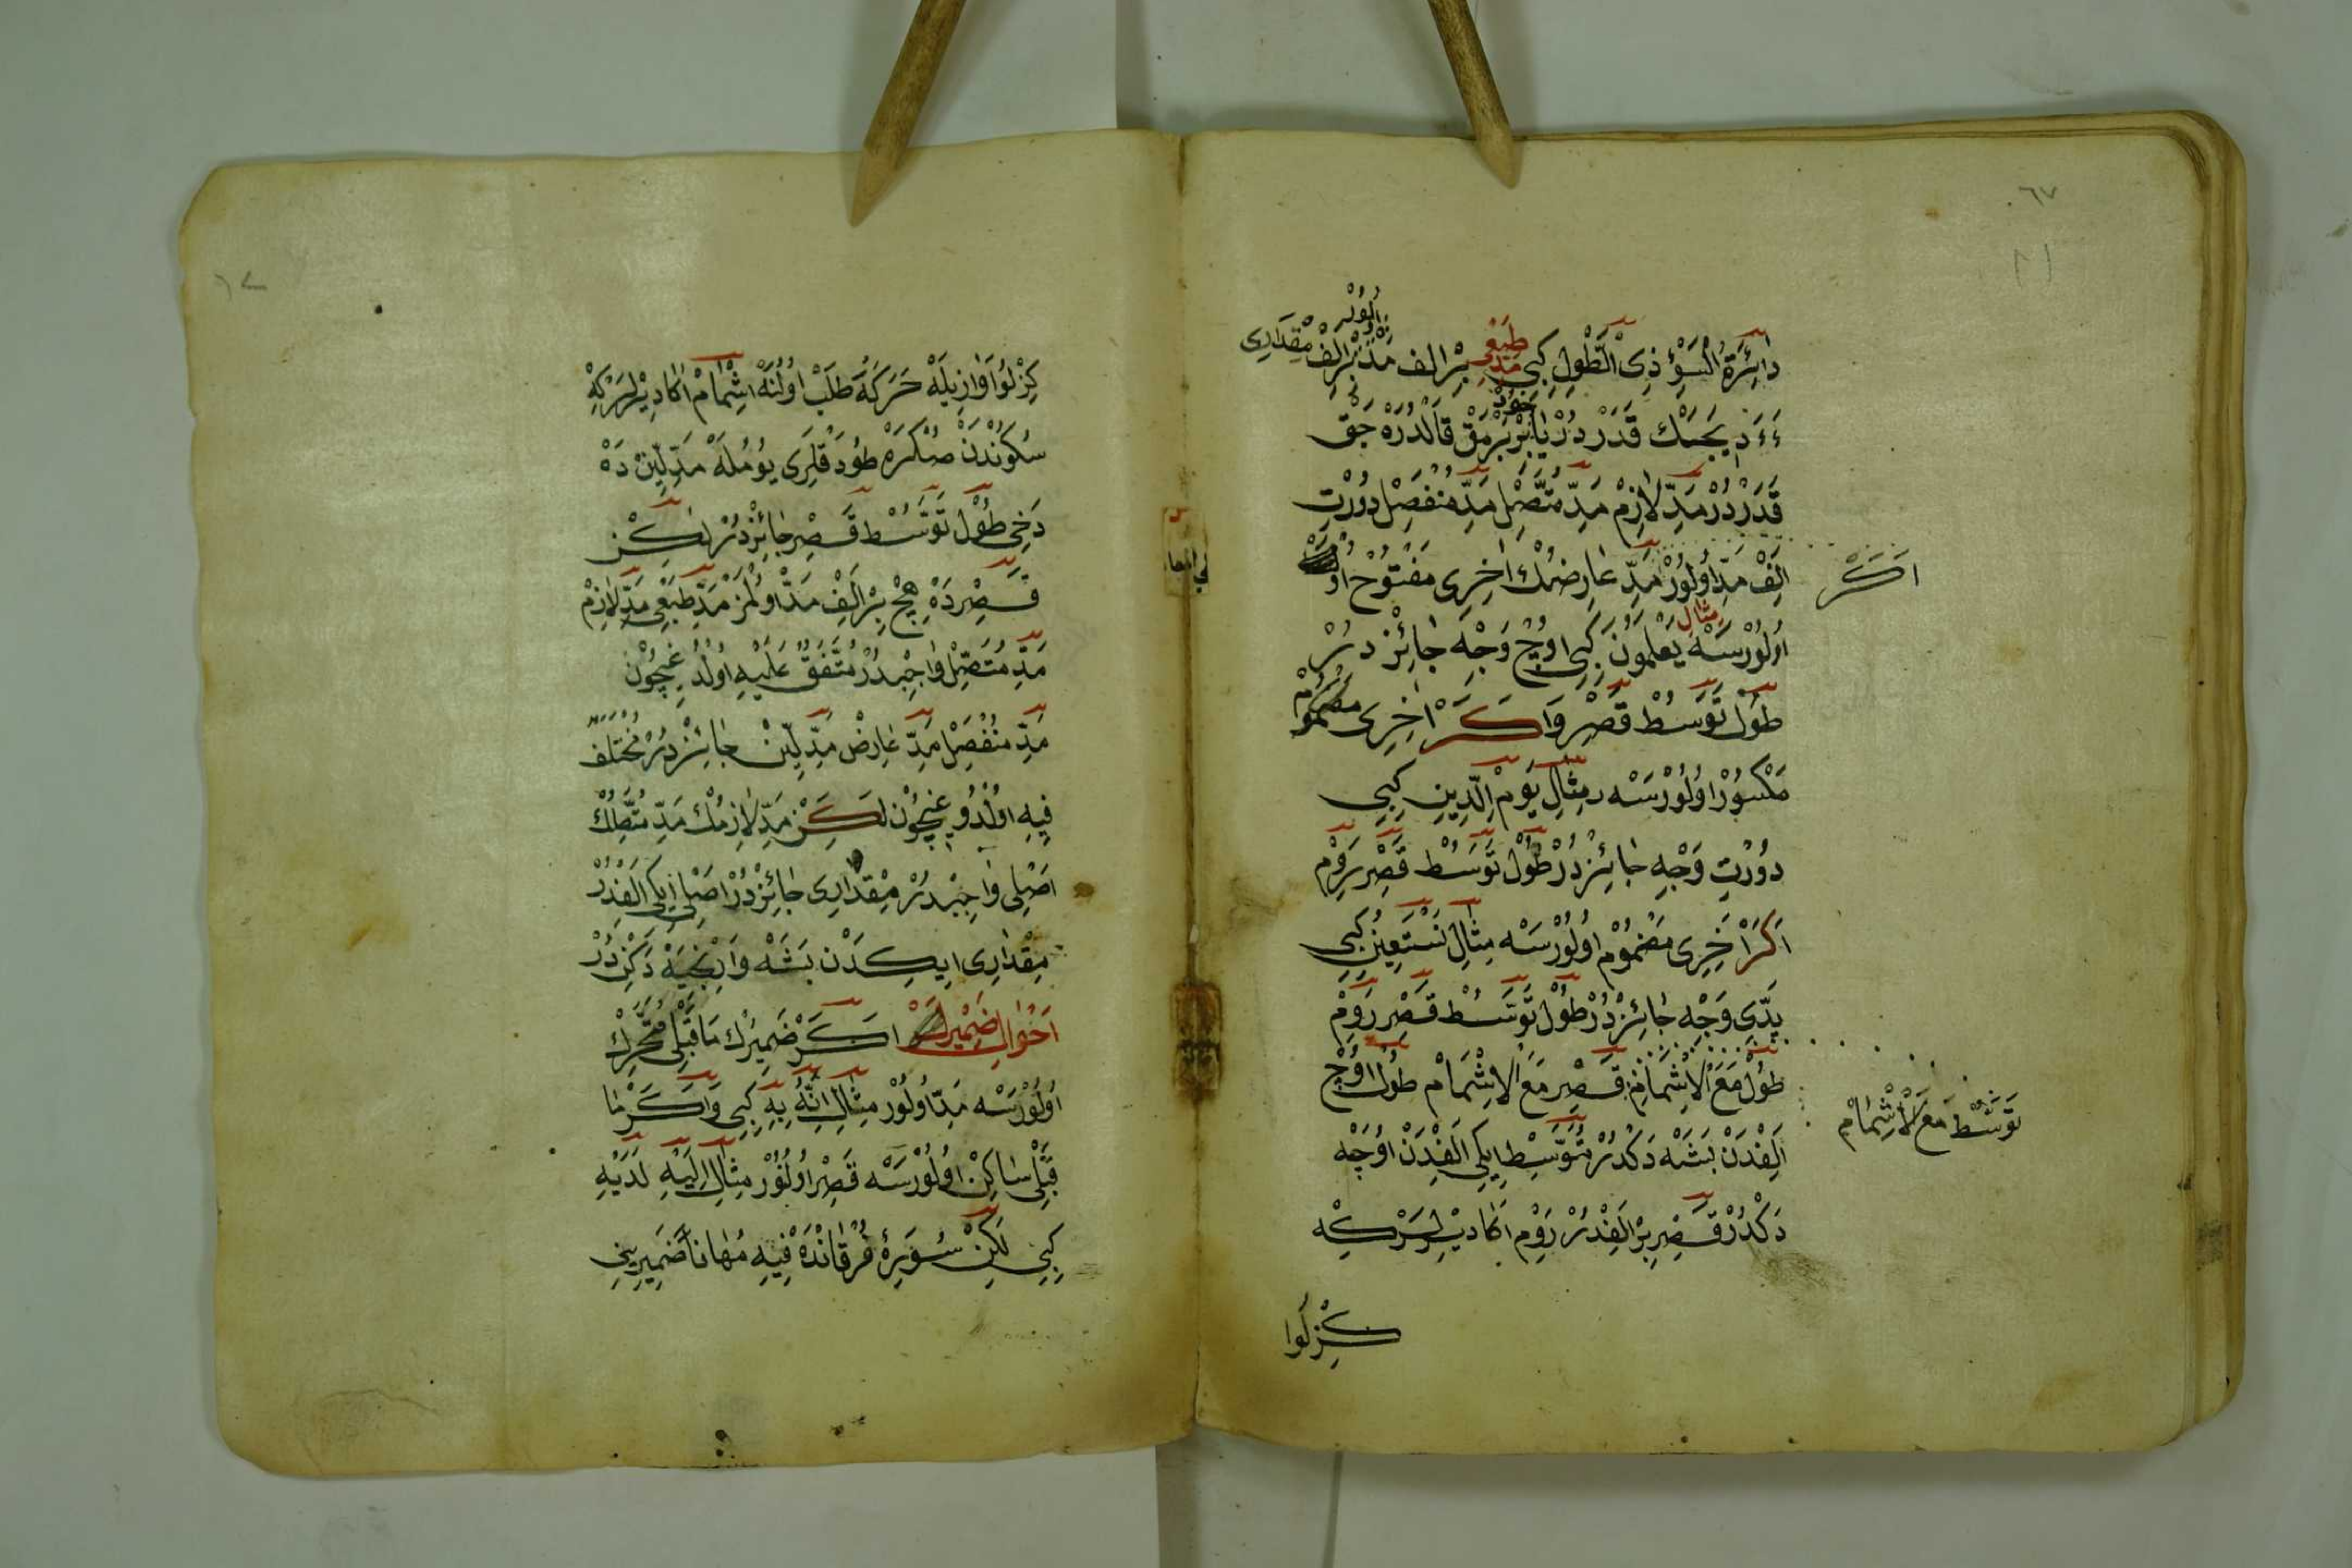 ٦٧
دٰٓائِرَةُ السَّوْءِ ذِى الطَّوْلِ كِبِى مَدِّ طَبْعِى بِرْ الف مَدْدُرْ بِرْ اَلِفْ مِقْدَارِى
ءَءَ دِيَجَكْ قَدَرْ دُرْ يَا بِرْ پَرْمَقْ قَالْدُرَهْ جَقْ
قَدَرْدُرْ مَدِّ لَازِمْ مَدِّ مُتَّصِلْ مَدِّ مُنْفَصِلْ دُورْتْ
اَلِفْ مَدِّ اُولُورْ مَدِّ عَارِضُكْ اٰخِرِى مَفْتُوحْ
اَكَرْ
اُولُورْسَهْ مِثَالِ يَعْلَمُونَ كِبِى اوُچْ وَجْهِ جَائِزْدُرْ
طُولْ تَوَسُّطْ قَصِرْ وَاكَرْ اٰخِرِى مَضْمُومْ
مَكْسُورْ اُولُورْسَهْ مِثَالِ يَوْمِ الدِّينِ كِبِى
دُورْتْ وَجْهِ جَائِزْدُرْ طُولْ تَوَسُّطْ قَصِرْ رَوْمْ
اَكَرْ اٰخِرِى مَضْمُومْ اُولُورْسَهْ مِثَالِ نَسْتَعِينُ كِبِى
يَدِّى وَجْهِ جَائِزْدُرْ طُولْ تَوَسُّطْ قَصِرْ رَوْمْ
طُولْ مَعَ الْاِشْمَامْ قَصِرْ مَعَ الْاِشْمَامْ طُولْ اُوچْ
تَوَسُّطْ مَعَ الْاِشْمَامْ
اَلِفْدَنْ بَشَهْ دَكْدُرْ تَوَسُّطْ اِيكِى اَلِفْدَنْ اُوچَهْ
دَكْدُرْ قَصِرْ بِرْ اَلِفْدُرْ رَوْمْ اَكَا دِيْرْلَرْكِهْ
كِزْلُوا
كِزْلُوا اَوَازِيلَهْ حَرَكَهْ طَلَبْ اُولُنَهْ اِشْمَامْ اَكَا دِيْرْلَرْكِهْ
سُكُونْدَنْ صُكْرَهْ طُودَقْلَرِى يُومُلَهْ مَدِّ لِينْ دَهْ
دَخِى طُولْ تَوَسُّطْ قَصِرْ جَائِزْدُرْ لٰكِنْ
قَصِرْدَهْ هِچْ بِرْ اَلِفْ مَدْ اُولْمَزْ مَدِّ طَبْعِى مَدِّ لَازِمْ
مَدِّ مُتَّصِلْ وَاجِبْدُرْ مُتَّفَقٌ عَلَيْهِ اُولْدُغِيچُونْ
مَدِّ مُنْفَصِلْ مَدِّ عَارِضْ مَدِّ لِينْ جَائِزْدُرْ مُخْتَلَفٌ
فِيهِ اُولْدُوغِيچُونْ لٰكِنْ مَدِّ لَازِمُكْ مَدِّ مُتَّصِلُكْ
اَصْلِى وَاجِبْدُرْ مِقْدَارِى جَائِزْدُرْ اَصْلِى اِيكِى اَلِفْدُرْ
مِقْدَارِى اِيكِدَنْ بَشَهْ وَارِنْجَيَهْ دَكِنْدُرْ
اَحْوَالِ ضَمِيرْ اَكَرْ ضَمِيرُكْ مَا قَبْلِى مُتَحَرِّكْ
اُولُورْسَهْ مَدِّ اُولُورْ مِثَالِ اِنَّهُ بِهِ كِبِى وَاَكَرْ مَا
قَبْلِى سَاكِنْ اُولُورْسَهْ قَصِرْ اُولُنُورْ مِثَالِ اِلَيْهِ لَدَيْهِ
كِبِى لٰكِنْ سُورَۀِ فُرْقَانْدَهْ فِيهِ مُهَانًا ضَمِيرِينِى